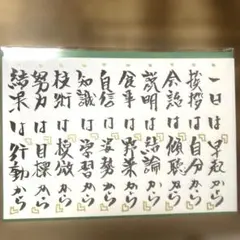 一日は早起から
挨拶は自分から
会話は傾聴から
説明は結論から
食事は野菜から
自信は姿勢から
知識は学習から
技術は模倣から
努力は目標から
結果は行動から